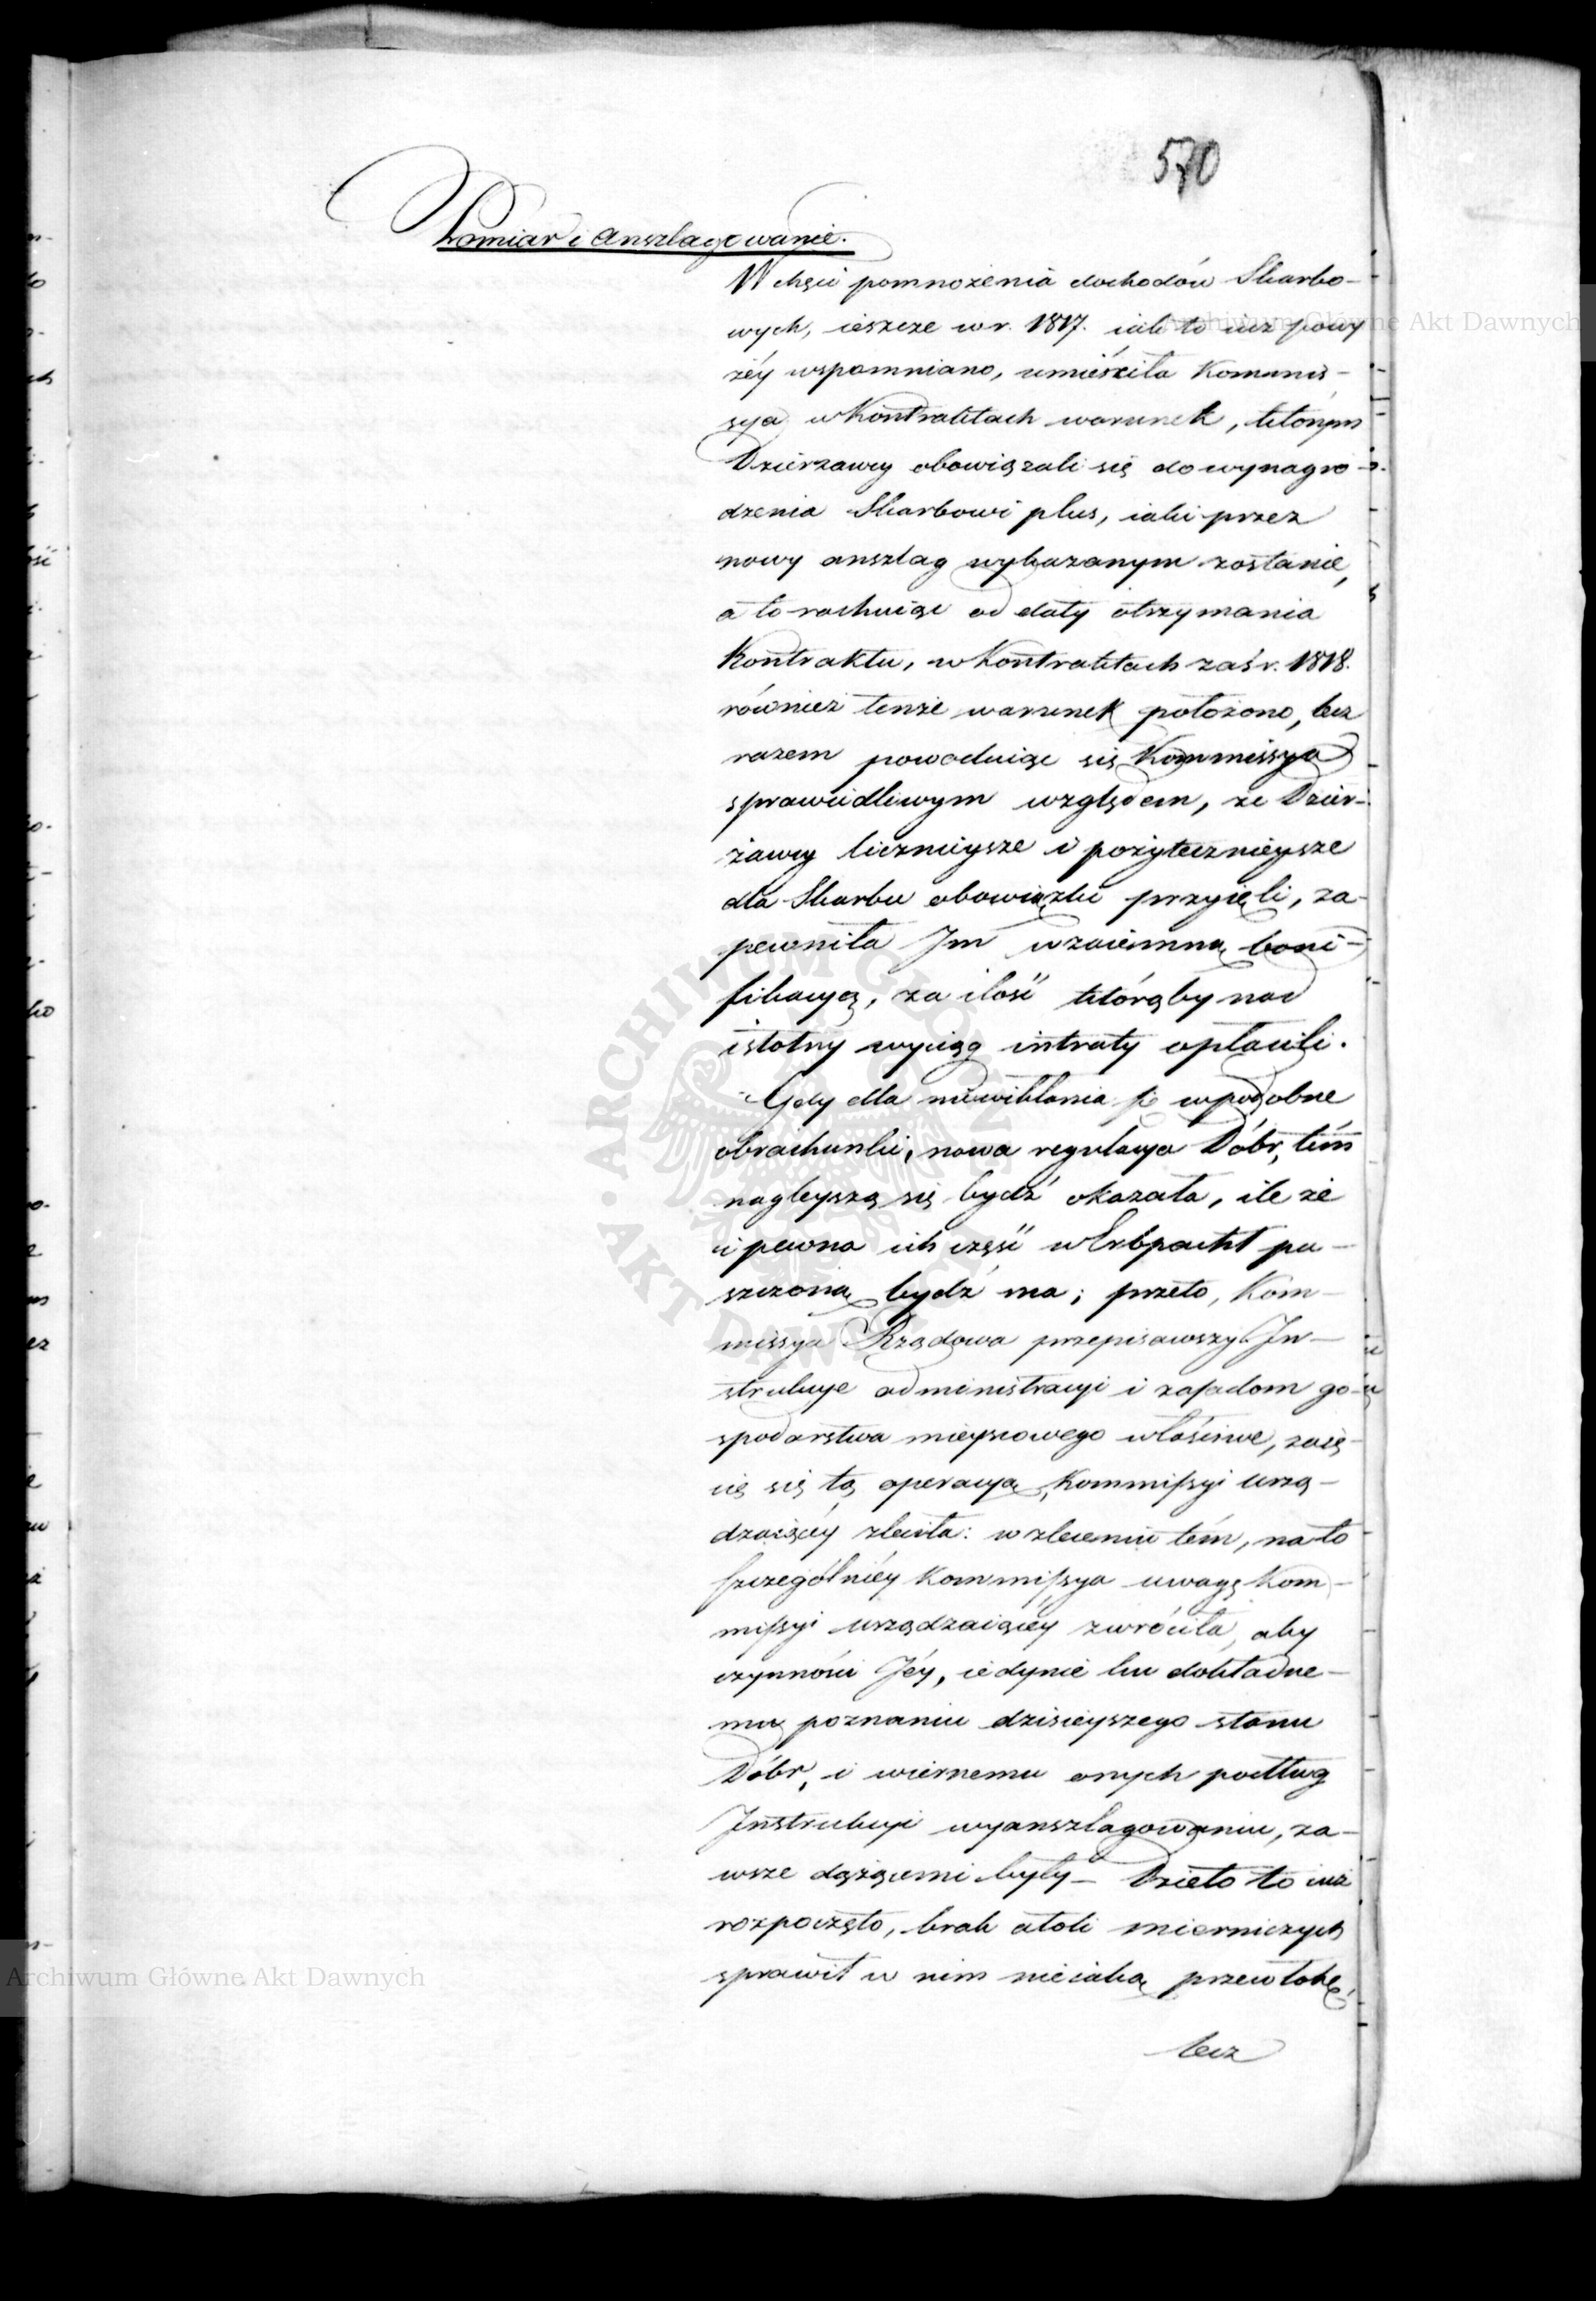 570
Pomiar i Anszlagowanie.
W chęci pomnożenia dochodów Skarbo-
wych, ieszcze w r. 1817. iak to iuż powy
żéy wspomniano, umieściła Kommis-
sya w Kontraktach warunek, którym
Dzierżawcy obowiązali się do wynagro-
dzenia Skarbowi plus, iaki przez
nowy anszlag wykazanym zostanie,
a to rachuiąc od daty otrzymania
Kontraktu, w Kontraktach zaś r. 1818.
również tenże warunek położono, lecz
razem powoduiąc się Kommissya
sprawiedliwym względem, że Dzier-
żawcy licznieysze i pożytecznieysze
dla Skarbu obowiązki przyięli, za-
pewniła Im wzaiemną boni-
fikacyą, za ilość którąby nad
istotny wyciąg intraty opłacili.
Gdy dla niewikłania się w podobne
obrachunki, nowa regulacya Dóbr, tém
nagleyszą się bydź okazała, ile że
i pewna ich część w Erbpacht pu-
szczoną bydź ma; przeto, Kom-
missya Rządowa przepisawszy In-
strukcye administracyi i zasadom go-
spodarstwa mieyscowego właściwe, zaię-
cie się tą operacyą, Kommissyi urzą-
dzaiącéy zleciła: w zleceniu tém, na to
szczególniéy Kommissya uwagę Kom-
missyi urządzaiącéy zwróciła, aby
czynności Jéy, iedynie ku dokładne-
mu poznaniu dzisieyszego stanu
Dóbr, i wiernemu onych podług
Instrukcyi wyanszlagowaniu, za-
wsze dążącemi były – Dzieło to iuż
rozpoczęto, brak atoli mierniczych
sprawił w nim nieiaką przewłokę,
lecz
Archiwum Główne Akt Dawnych
Archiwum Główne Akt Dawnych
ARCHIWUM GŁÓWNE AKT DAWNYCH